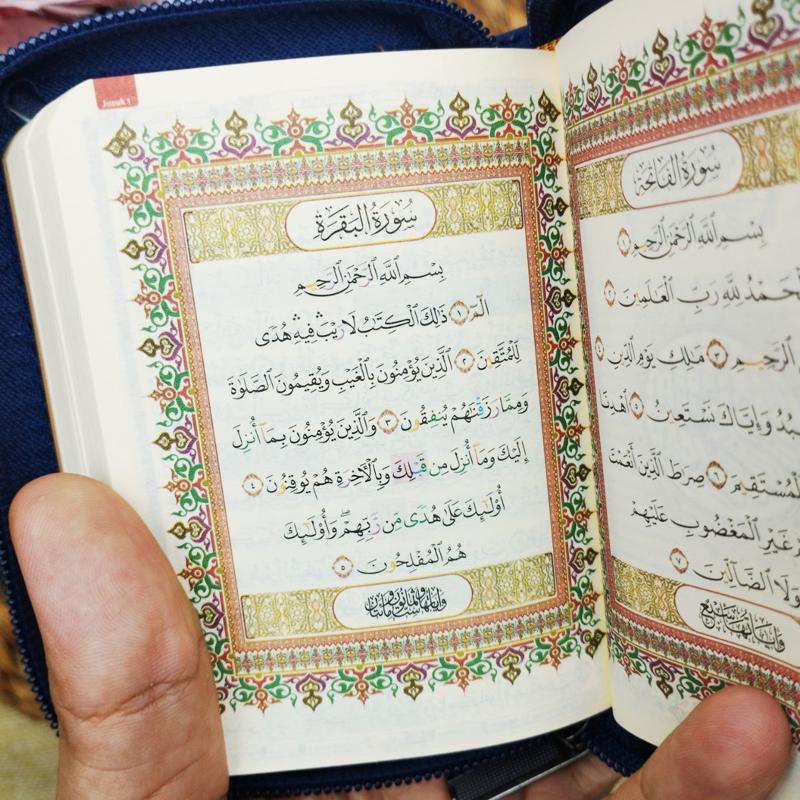 سُورَةُ الفَاتِحَة
بِسْمِ ٱللَّهِ ٱلرَّحْمَٰنِ ٱلرَّحِيمِ ١
ٱلْحَمْدُ لِلَّهِ رَبِّ ٱلْعَٰلَمِينَ ٢
ٱلرَّحِيمِ ٣ مَٰلِكِ يَوْمِ ٱلدِّينِ ٤
وَإِيَّاكَ نَسْتَعِينُ ٥ ٱهْدِنَا
ٱلْمُسْتَقِيمَ ٦ صِرَٰطَ ٱلَّذِينَ أَنْعَمْتَ
غَيْرِ ٱلْمَغْضُوبِ عَلَيْهِمْ
وَلَا ٱلضَّآلِّينَ ٧
وآياتها سبع
Juzuk 1
سُورَةُ البَقَرَةِ
بِسْمِ ٱللَّهِ ٱلرَّحْمَٰنِ ٱلرَّحِيمِ
الٓمٓ ١ ذَٰلِكَ ٱلْكِتَٰبُ لَا رَيْبَ ۛ فِيهِ ۛ هُدًى
لِّلْمُتَّقِينَ ٢ ٱلَّذِينَ يُؤْمِنُونَ بِٱلْغَيْبِ وَيُقِيمُونَ ٱلصَّلَوٰةَ
وَمِمَّا رَزَقْنَٰهُمْ يُنفِقُونَ ٣ وَٱلَّذِينَ يُؤْمِنُونَ بِمَآ أُنزِلَ
إِلَيْكَ وَمَآ أُنزِلَ مِن قَبْلِكَ وَبِٱلْأَخِرَةِ هُمْ يُوقِنُونَ ٤
أُو۟لَٰٓئِكَ عَلَىٰ هُدًى مِّن رَّبِّهِمْ ۖ وَأُو۟لَٰٓئِكَ
هُمُ ٱلْمُفْلِحُونَ ٥
وآياتها مائتان وست وثمانون